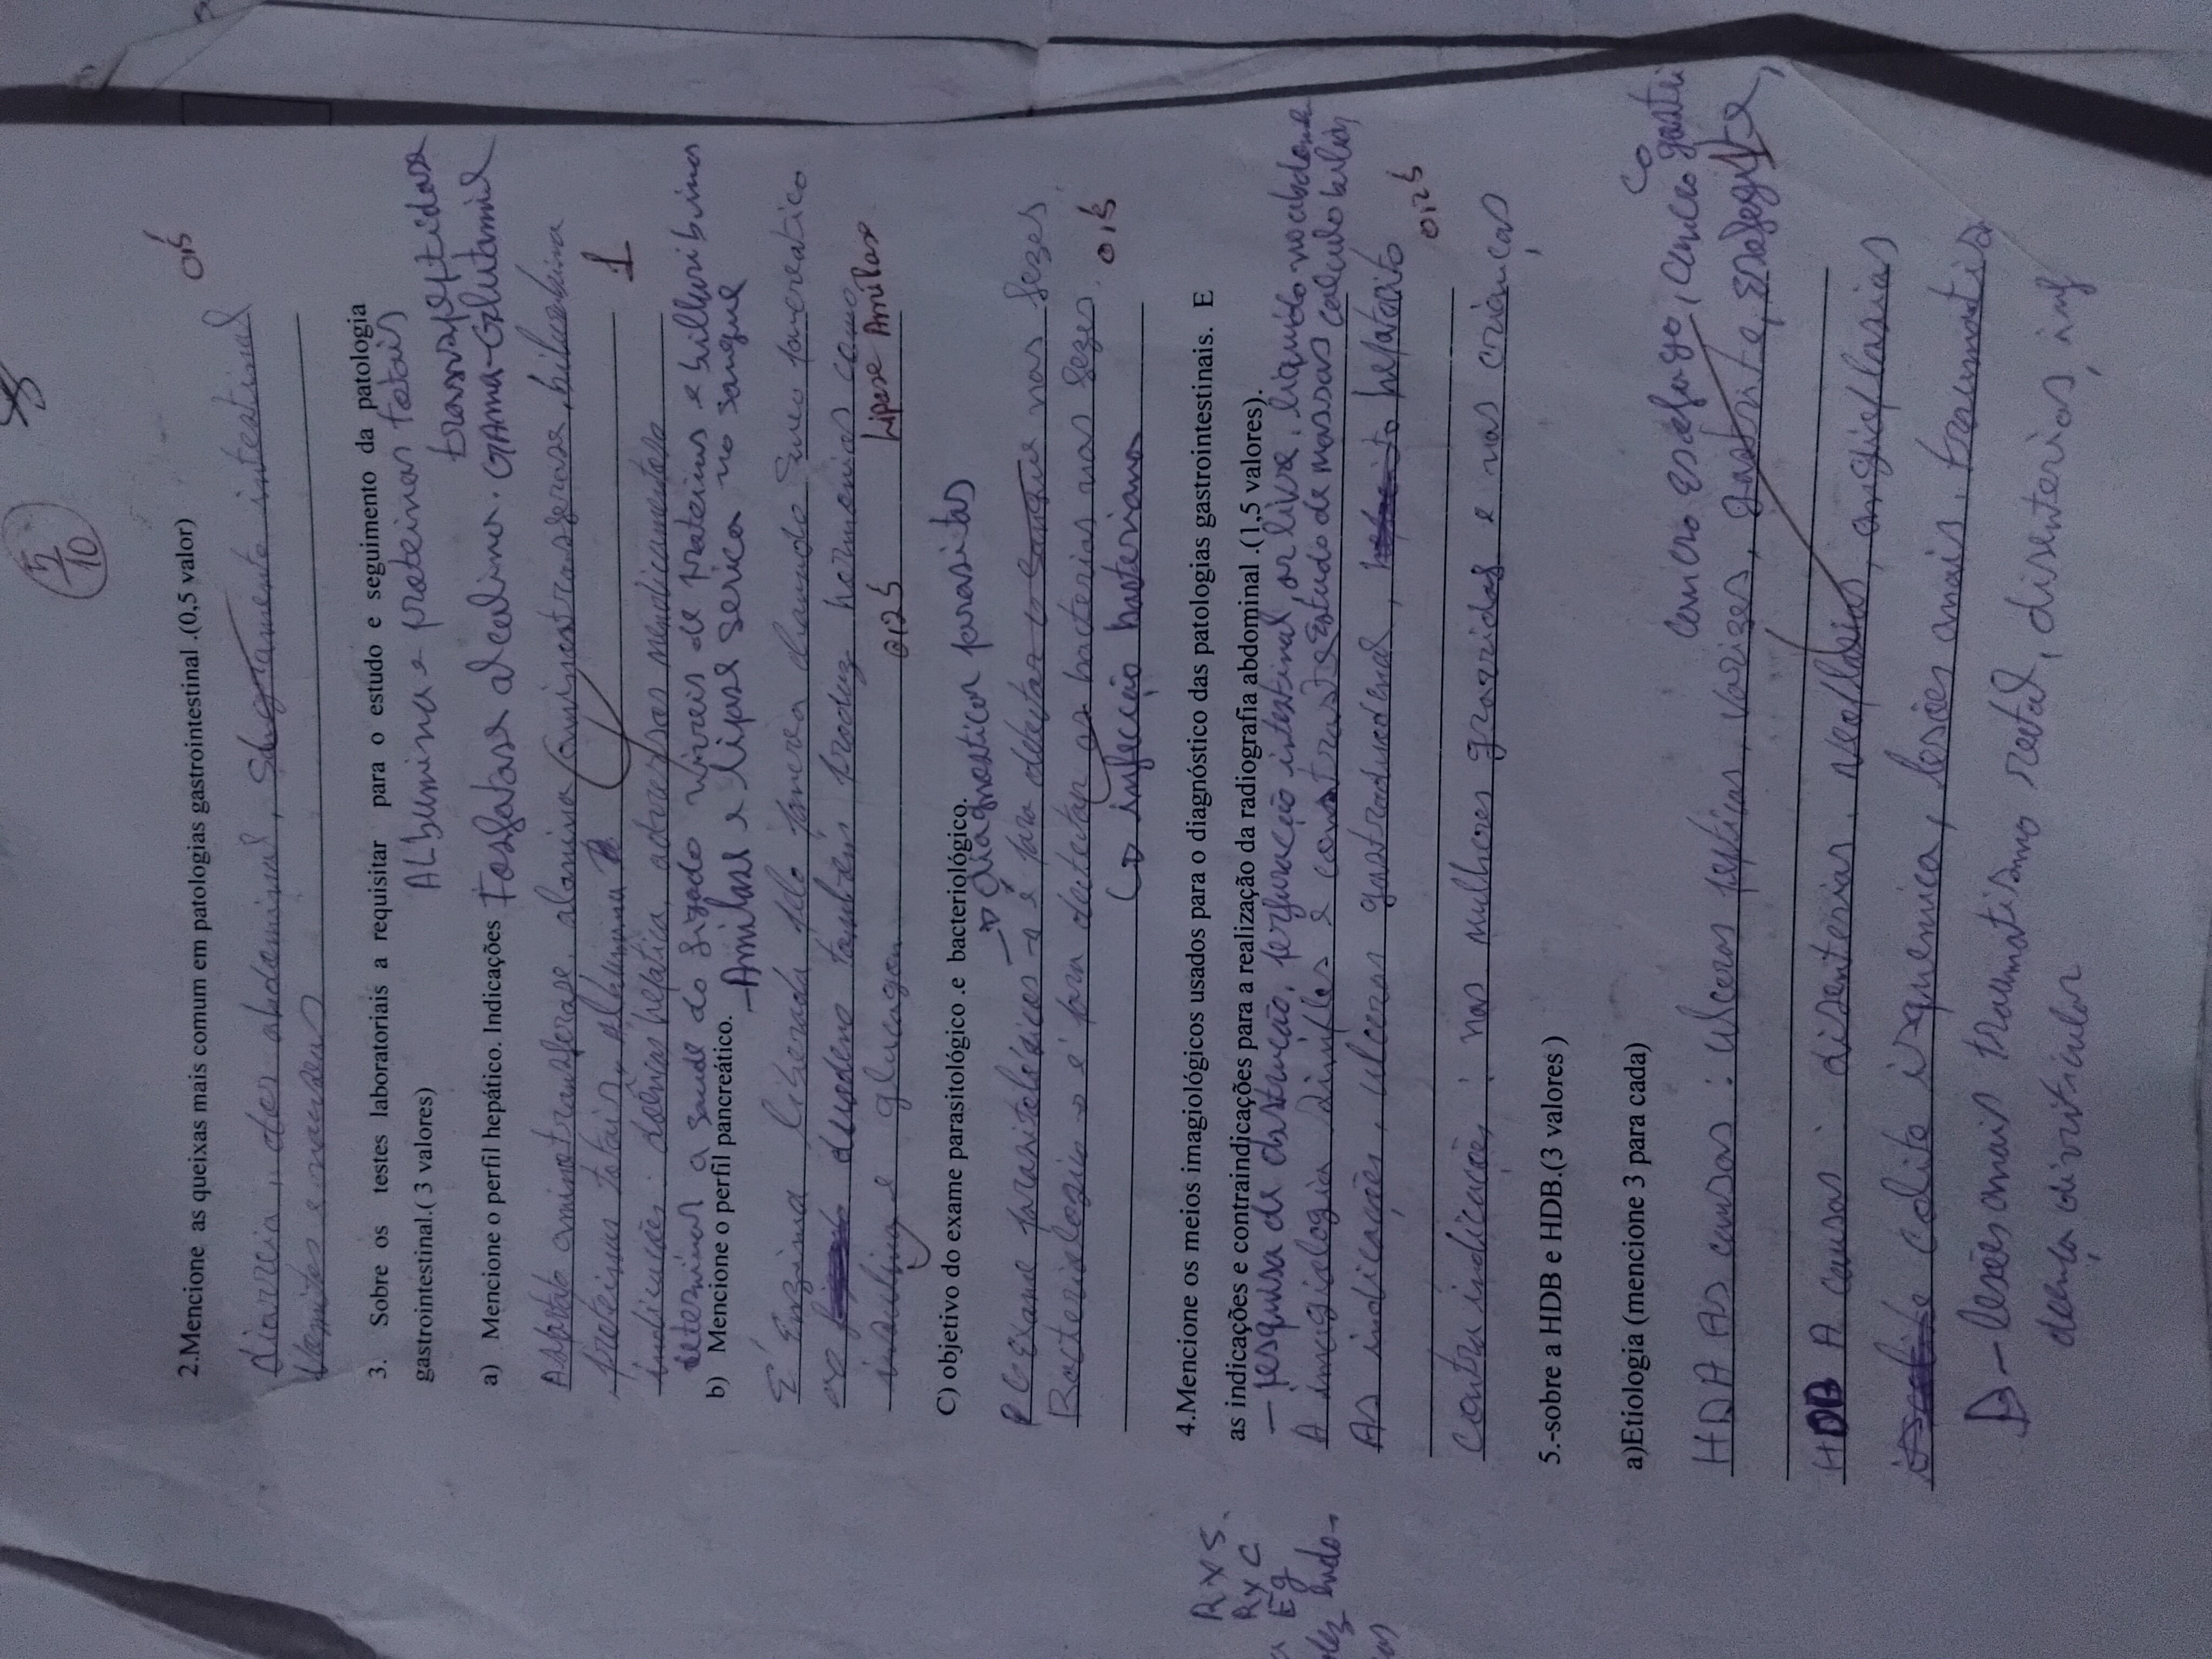 5/10
2.Mencione as queixas mais comum em patologias gastrointestinal .(0,5 valor)
0,5
diarreia, dor abdominal, sangramento intestinal
Vomitos e nauseas
3. Sobre os testes laboratoriais a requisitar para o estudo e seguimento da patologia
gastrointestinal.( 3 valores)
ALbumina e proteinas totais
transpeptidase
a) Mencione o perfil hepático. Indicações
Fosfatase alcalina. GAma-Glutamil
Aspartato aminotransferase, alanina aminotransferase, bilirubina
proteinas totais, Albumina
1
indicações: doenças hepatica, adversas mendicamentosa
determinar a saude do figado niveis de proteinas e billuribinas
b) Mencione o perfil pancreático.
-Amilase e lipase serica no sangue
É Enzima liberada pelo pancrea chamado Suco pancreatico
ao duodeno também produz hormonias como
insulina e glucagon
0,25
Lipase Amilase
C) objetivo do exame parasitológico .e bacteriológico.
→ diagnosticar parasitas
Exame parasitológicos → é para detectar o sangue nas fezes
Bacteriologico → é para detectar as bacterias nas fezes
0,5
↳ infecção bacteriana
4.Mencione os meios imagiológicos usados para o diagnóstico das patologias gastrointestinais. E
as indicações e contraindicações para a realização da radiografia abdominal .(1,5 valores).
RX S.
RX C
Eg
endo-
- pesquisa de obstrução, perfuração intestinal, ar livre, liquido no abdomen
A imagiologia Simples e contraste Estudo de massas calculo
As indicações, ulceras gastroduodenal, hepatocito
0,25
contra indicações : nas mulheres gravidas e nas crianças
5.-sobre a HDB e HDB.(3 valores )
a)Etiologia (mencione 3 para cada)
cancro Esofago, cancro gastri
co
HDA As causas : ulceras pepticas, varizes, gastrite, Esofegite,
HDB A causas : disenterias, Neoplasias, angioplasias
colite isquemica, lesões anais, traumatis
- lesões anais traumatismo rectal, disenterias, inf
doença diverticular